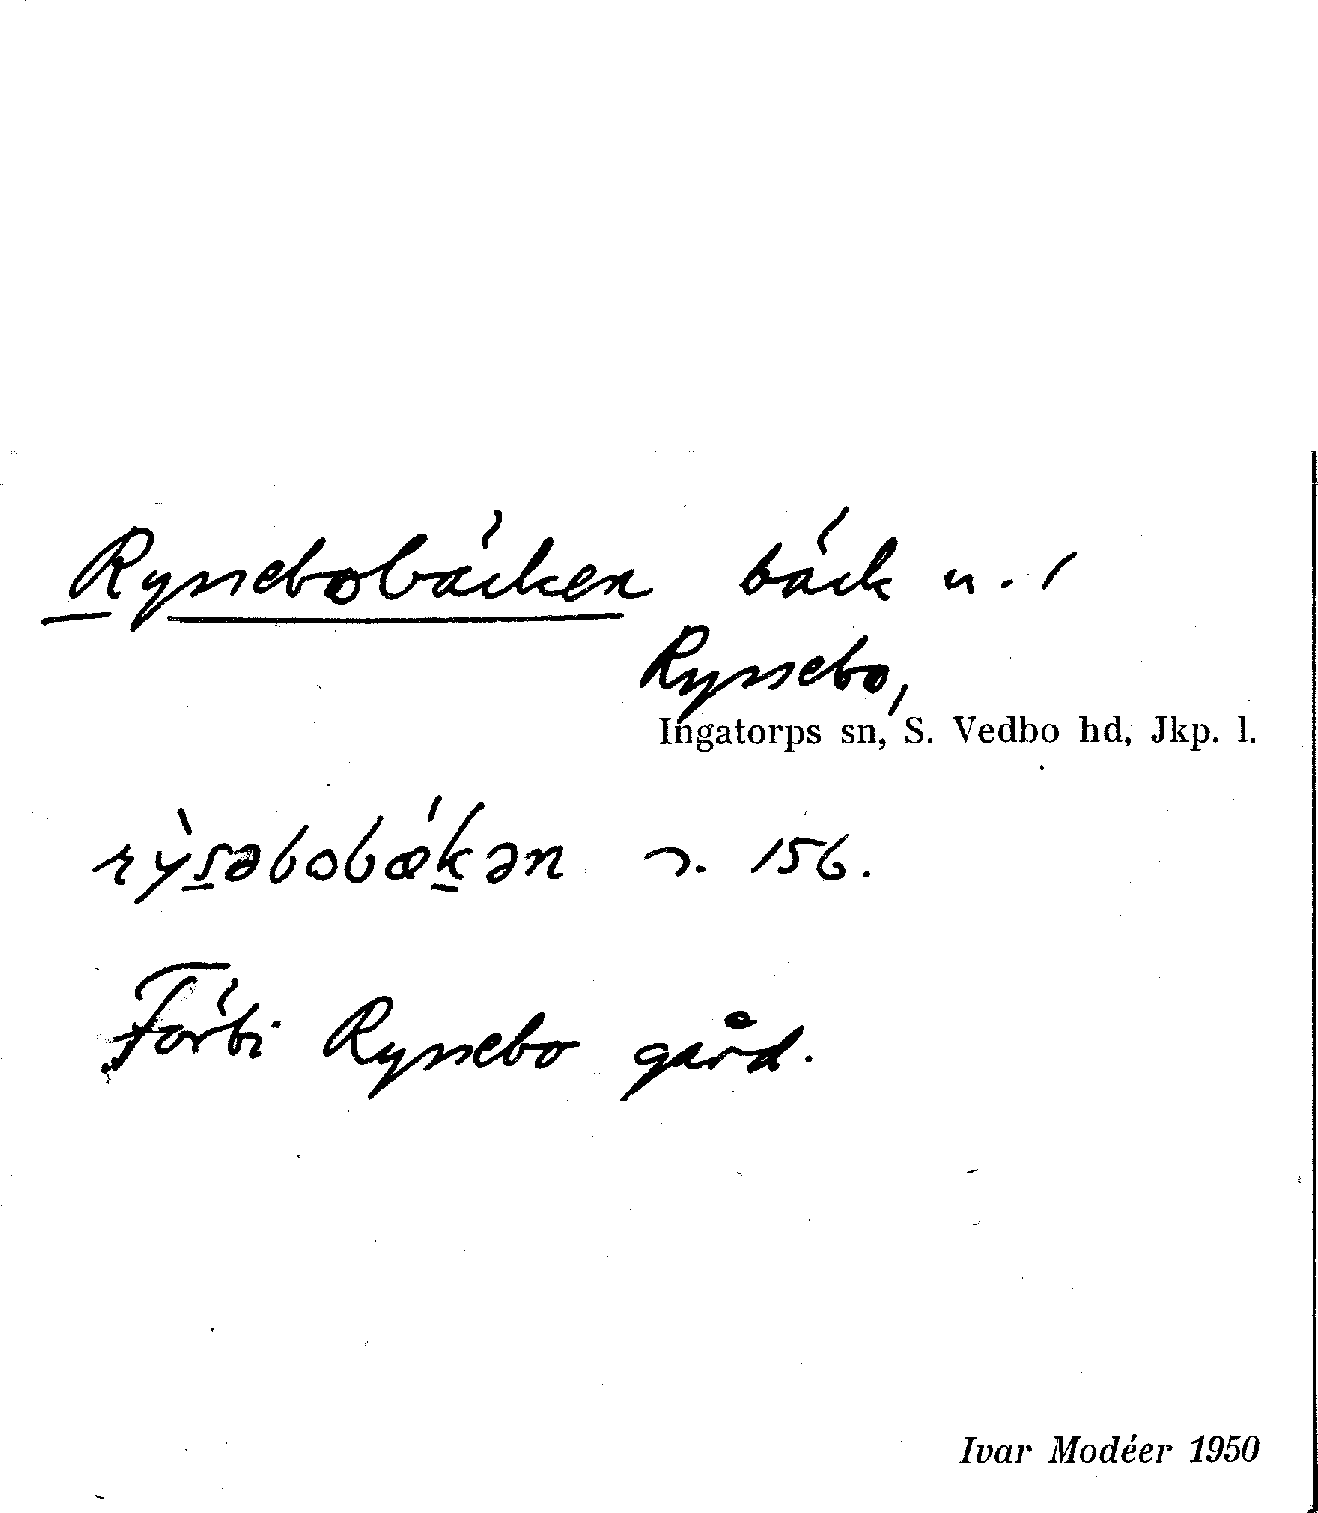 Ryssebobäcken bäck u. /
Ryssebo,
Ingatorps sn, S. Vedbo hd, Jkp. l.
rỳs̲əbobǽk̲ən 156.
Förbi Ryssebo gård.
Ivar Modéer 1950